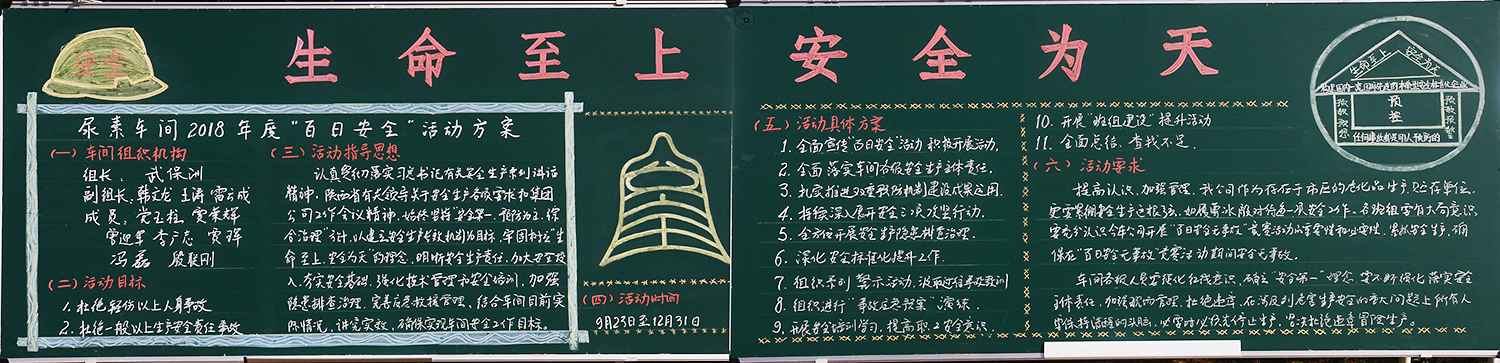 生命至上
安全为天
安全
尿素车间2018年度“百日安全”活动方案
(一)车间组织机构
组长、武保洲
副组长、韩过龙 王涛 雷云成
成员、党玉柱 窦荣辉
雷迎军 李广志 贾辉
冯磊 殷联刚
(二)活动目标
1.杜绝轻伤以上人身事故
2.杜绝一般以上生产安全责任事故
(三)活动指导思想
认真贯彻落实习总书记有关安全生产系列讲话
精神,陕西省有关领导关于安全生产各项要求和集团
公司工作会议精神,始终坚持“安全第一、预防为主、综
合治理”方针,以建立安全生产长效机制为目标,牢固树立“生
命至上、安全为天”的理念,明晰安全生产责任,加大安全投
入,夯实安全基础,强化技术管理和安全培训,加强
隐患排查治理,完善应急救援管理,结合车间目前实
际情况,讲究实效,确保实现车间安全工作目标。
(四)活动时间
9月23日至12月31日
(五)活动具体方案
1.全面宣传“百日安全”活动 积极开展活动,
2.全面落实车间各级安全生产主体责任,
3.扎实推进双重预防机制建设成果运用,
4.持续深入展开安全三项攻坚行动,
5.全方位开展安全生产隐患排查治理,
6.深化安全标准化提升工作,
7.组织系列警示活动,汲取过往事故教训
8.组织进行“事故应急预案”演练,
9.开展安全培训学习,提高职工安全意识,
10.开展“班组建设”提升活动
11.全面总结、查找不足,
(六)活动要求
提高认识、加强管理,我公司作为存在于市区的危化品生产、贮存单位,
更要紧绷安全生产这根弦,如履薄冰般对待每一项安全工作,各班组要有大局意识
要充分认识今年公司开展“百日安全无事故”竞赛活动的重要性和必要性,紧抓安全生产,确
保在“百日安全无事故”竞赛活动期间安全无事故,
车间各级人员要强化红线意识,确立“安全第一”理念,要不断强化落实安全
主体责任,加强现场管理,杜绝违章,在涉及到危害生产安全的重大问题上所有人
要保持清醒的头脑,必要时必须先停止生产,坚决杜绝违章冒险生产。
生命至上 安全为天
预控
任何事故都是可以预防的